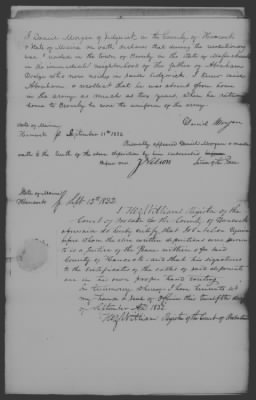 I Daniel Morgan of Sedgwick in the County of Hancock
& State of Maine on oath declare that during the revolutionary
war I resided in the town of Beverly in the State of Massachusetts
in the immediate neighborhood of the father of Abraham
Dodge who now resides in said Sedgwick. I knew said
Abraham & recollect that he was absent from home
in the army as much as two years. When he returned
home to Beverly he wore the uniform of the army.
Daniel Morgan
State of Maine
Hancock ss September 11th 1832
Personally appeared Daniel Morgan & made
oath to the truth of the above deposition by him subscribed
before me J Nelson Justice of the Peace
State of Maine
Hancock ss Sept. 12th 1832
I Register of the
Court of Probate in the County of Hancock
aforesaid do hereby certify that John Nelson Esquire
before whom the above written depositions were sworn
to is a Justice of the Peace within & for said
County of Hancock and that his signatures
to the certificates of the oaths of said deponents
are in his own proper hand writing
In testimony whereof I have hereunto set
my hand & seal of office this twelfth day
of September AD 1832
Register of the Court of Probate